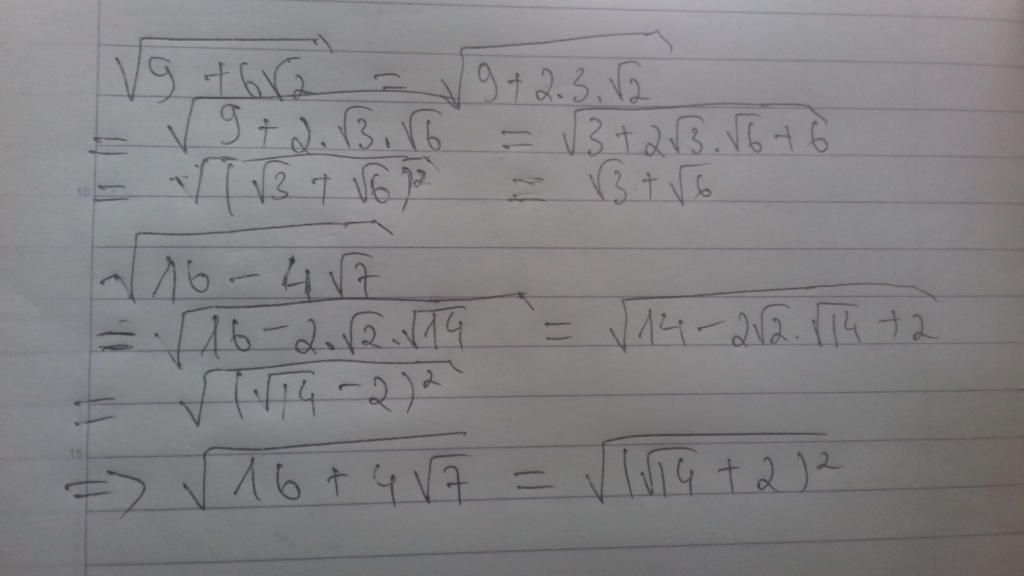 √(9 + 6√2) = √(9 + 2.3.√2)
= √(9 + 2.√3.√6) = √(3 + 2√3.√6 + 6)
= √((√3 + √6)²) = √3 + √6
10
√(16 - 4√7)
= √(16 - 2.√2.√14) = √(14 - 2√2.√14 + 2)
= √((√14 - 2)²)
15
=> √(16 + 4√7) = √((√14 + 2)²)